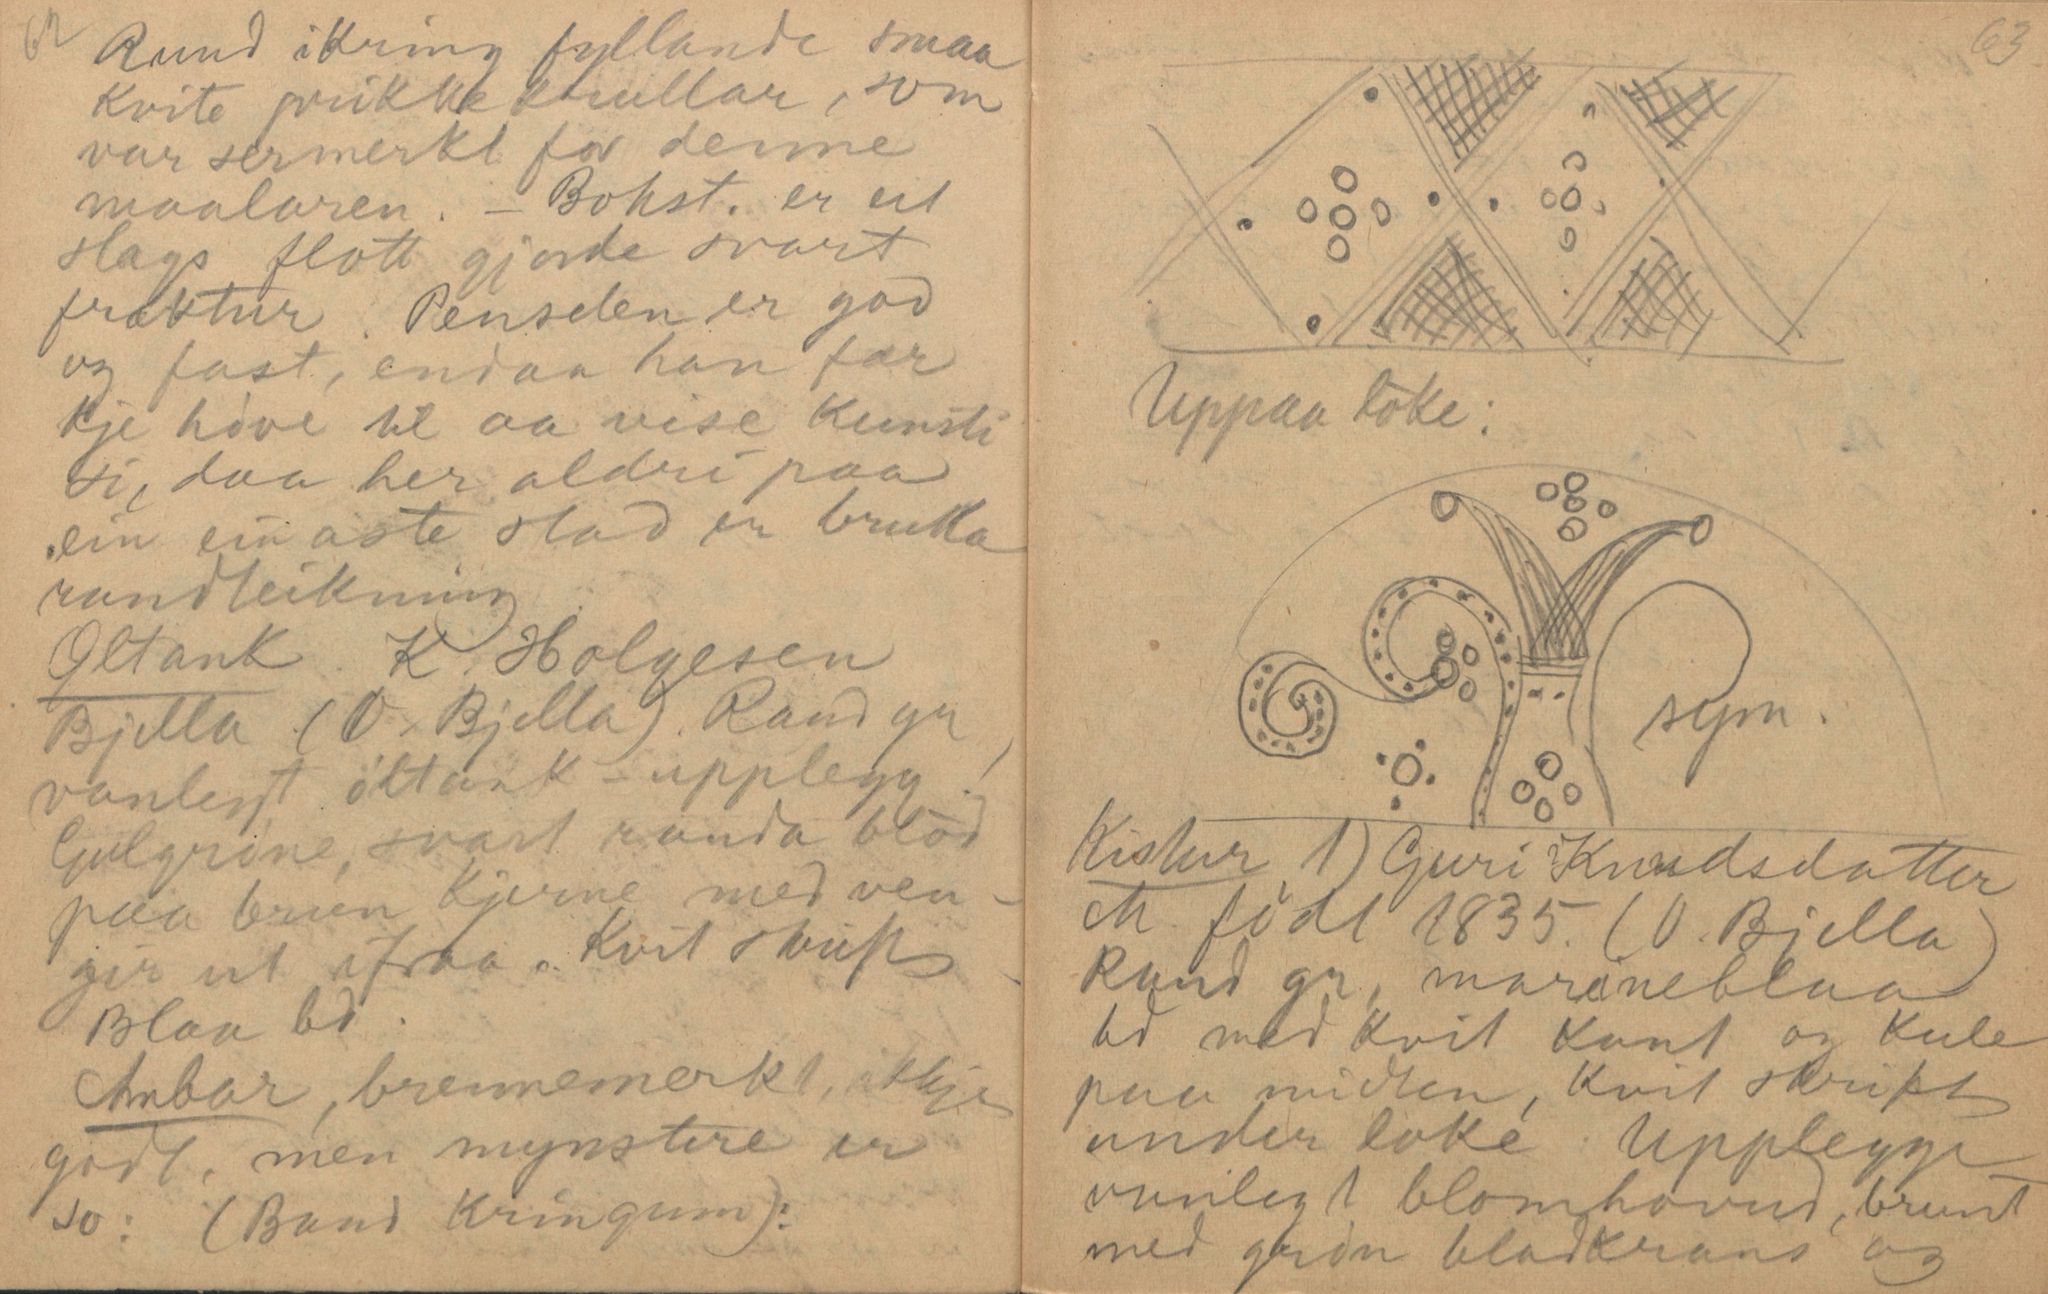 62
Rund ikring fyllande smaa
kvite prikkekrullar, som
var sermerkt for denne
maalaren. – Bokst. er eit
slags flott gjorde svart
fraktur. Penselen er god
og fast, endaa han fær
kje høve til aa vise kunsti
si, daa her aldri paa
ein einaste stad er bruka
randteikning
Øltank. K. Holgesen
Bjella (O. Bjella). Raud gr,
vanlegt øltank-upplegg.
Gulgrøne, svart randa blød
paa brun kjerne med ven-
gir ut ifraa. Kvit skrift
Blaa bd.
Ambar, brennemerkt, ikkje
godt, men mynstere er
so: (Band kringum):
63
Uppaa loke:
sym.
Kistur 1) Guri Knudsdatter
M. født 1835. (O. Bjella)
Raud gr, marineblaa
bd med kvit kant og kule
paa midten, kvit skrift
under loke. Upplegge
vanlegt blomhovud, brunt
med grøn bladkrans og